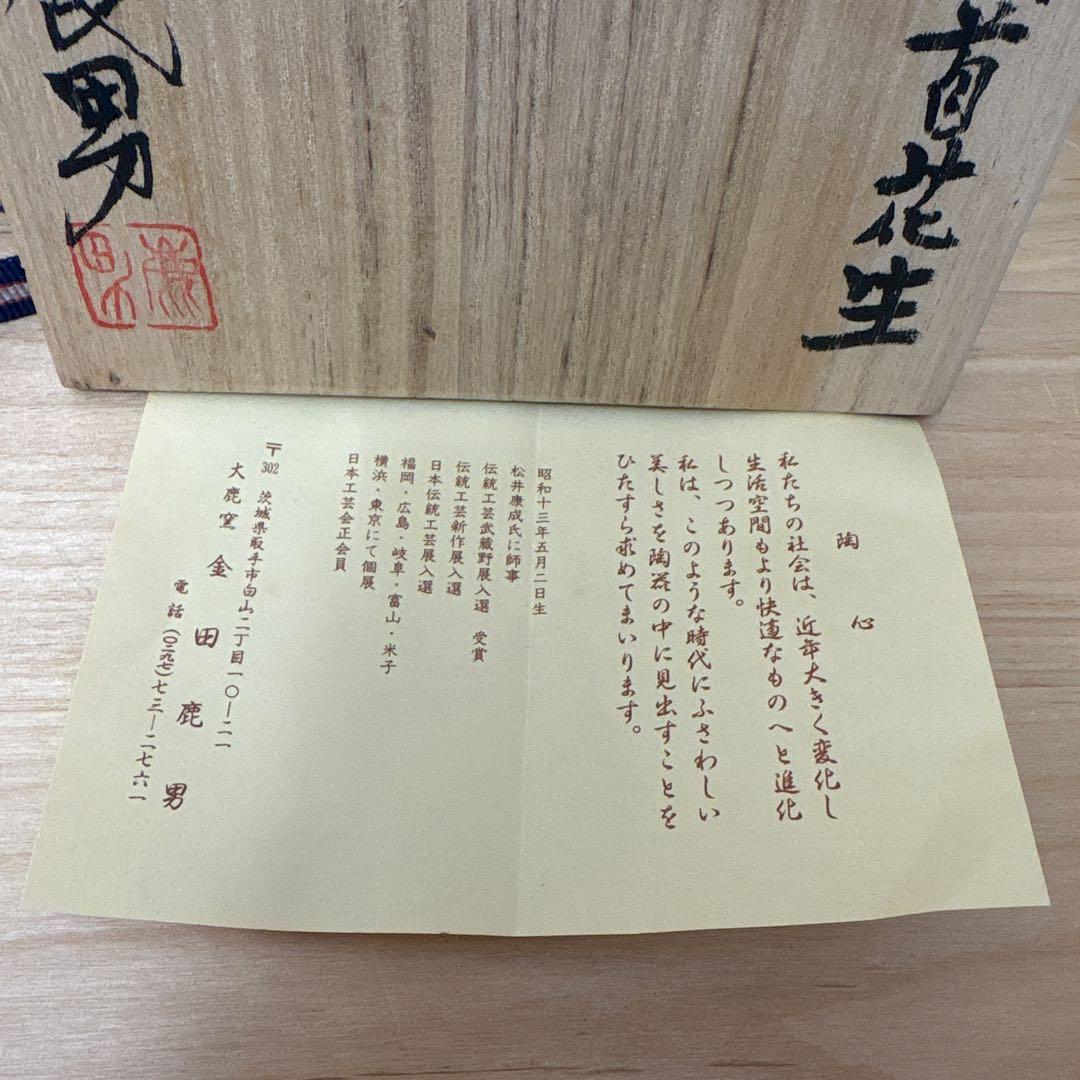 首花生
鹿男
鹿男
陶心
私たちの社会は、近年大きく変化し
生活空間もより快適なものへと進化
しつつあります。
私は、このような時代にふさわしい
美しさを陶器の中に見出すことを
ひたすら求めてまいります。
昭和十三年五月二日生
松井康成氏に師事
伝統工芸武蔵野展入選 受賞
伝統工芸新作展入選
日本伝統工芸展入選
福岡・広島・岐阜・富山・米子
横浜・東京にて個展
日本工芸会正会員
〒302 茨城県取手市白山二丁目一〇―二一
大鹿窯 金田鹿男
電話(〇二九七)七三―二七六一